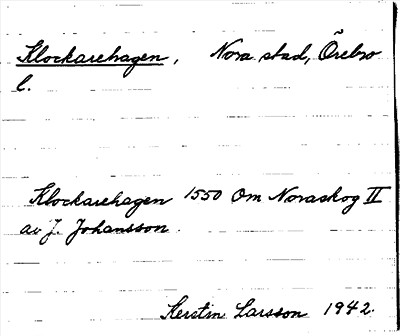 Klockarehagen, Nora stad, Örebro
l.
Klockarehagen 1550 Om Noraskog II
av J. Johansson.
Kerstin Larsson 1942.